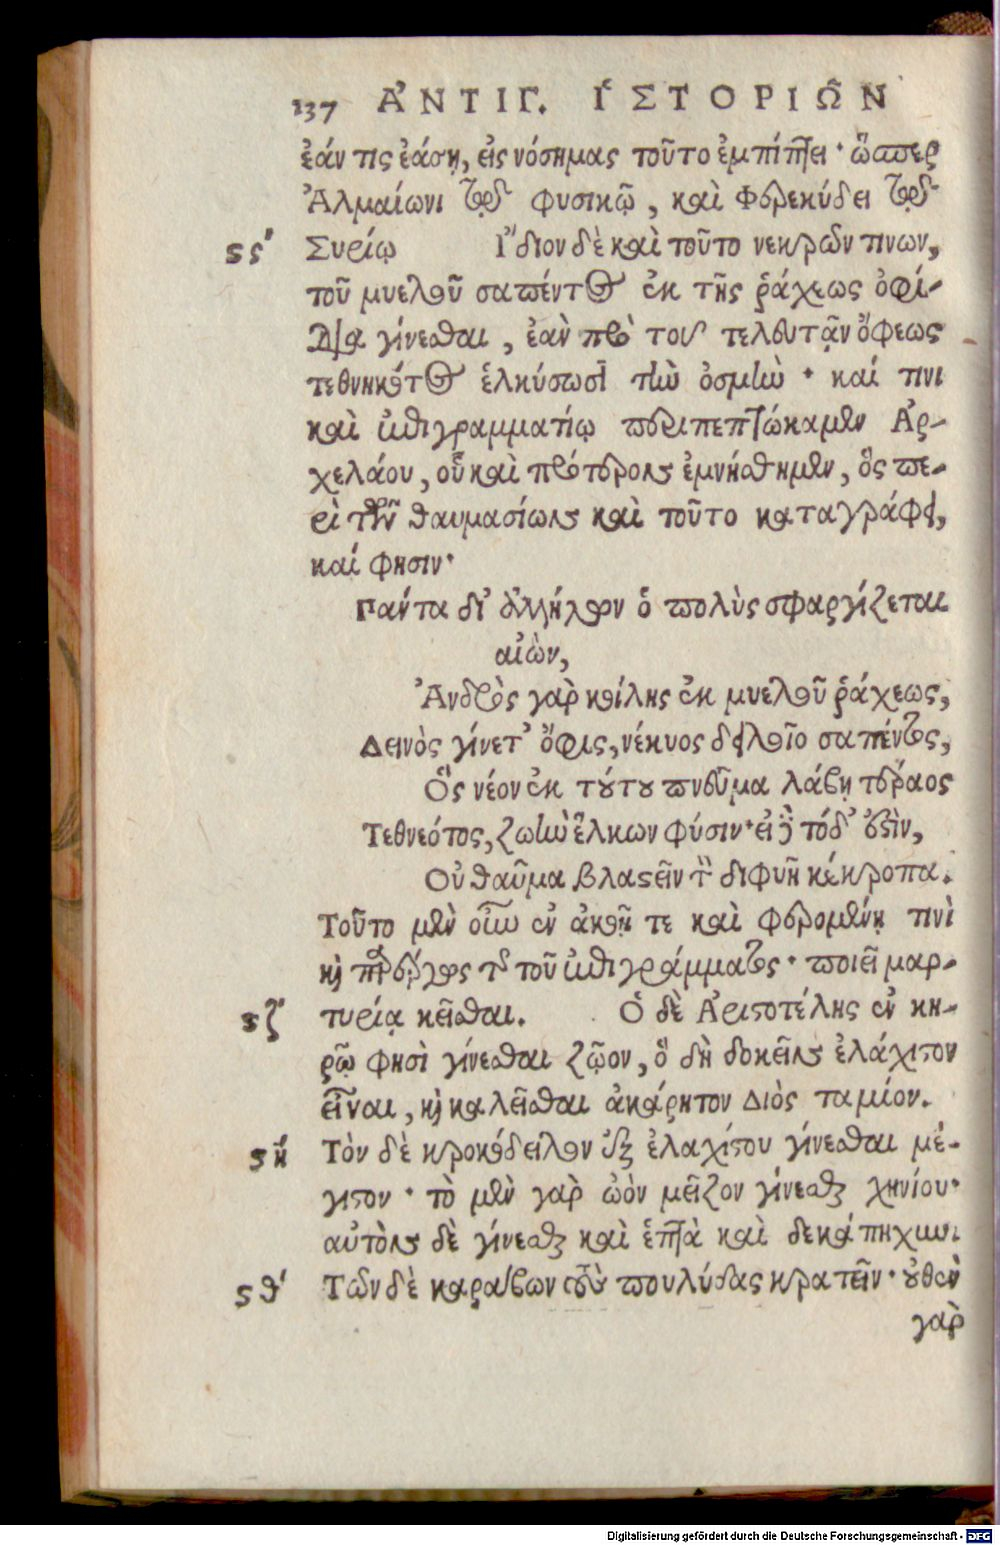 137 ἈΝΤΙΓ. ἹΣΤΟΡΙΩ͂Ν
ἐάν τις ἐάσῃ, εἰς νόσημας τοῦτο ἐμπίπτει· ὥσπερ
Ἀλμαίωνι τῷ φυσικῷ, καὶ Φερεκύδει τῷ
ϛϛʹ Συρίῳ Ἴδιον δὲ καὶ τοῦτο νεκρῶν τινων,
τοῦ μυελοῦ σαπέντος ἐκ τῆς ῥάχεως ὀφί-
δια γίνεσθαι, ἐὰν πρὸ τοῦ τελευτᾷν ὄφεως
τεθνηκότος ἑλκύσωσι τὴν ὀσμήν· καί τινι
καὶ ἐπιγραμματίῳ περιπεπτώκαμεν Ἀρ-
χελάου, οὗ καὶ πρότερον ἐμνήσθημεν, ὃς πε-
ρὶ τῶν θαυμασίων καὶ τοῦτο καταγράφει,
καί φησιν·
Πάντα δι' ἀλλήλων ὁ πολὺς σφαργίζεται
αἰὼν,
Ἀνδρὸς γὰρ κοίλης ἐκ μυελοῦ ῥάχεως,
Δεινὸς γίνετ' ὄφις, νέκυος δειλοῖο σαπέντος,
Ὃς νέον ἐκ τούτου πνεῦμα λάβῃ τέραος
Τεθνεότος, ζωὴν ἕλκων φύσιν· εἰ δὲ τόδ' ἐστὶν,
Οὐ θαῦμα βλαστεῖν τὸν διφυῆ κέκροπα.
Τοῦτο μὲν οὖν ἐν ἀκοῇ τε καὶ φερομένῃ τινὶ
καὶ παρέργως τῆς τοῦ ἐπιγράμματος· ποιεῖ μαρ-
ϛζʹ τυρίᾳ κεῖσθαι. Ὁ δὲ Ἀριστοτέλης ἐν κη-
ρῷ φησὶ γίνεσθαι ζῷον, ὃ δὴ δοκεῖν ἐλάχιστον
εἶναι, καὶ καλεῖσθαι ἀκάρητον Διὸς ταμίον.
ϛηʹ Τὸν δὲ κροκόδειλον ἐξ ἐλαχίστου γίνεσθαι μέ-
γιστον· τὸ μὲν γὰρ ὠὸν μεῖζον γίνεσθαι χηνίου·
αὐτὸν δὲ γίνεσθαι καὶ ἑπτὰ καὶ δεκάπηχυν.
ϛθʹ Τῶν δὲ καράβων τοὺς πουλύπας κρατεῖν· οὐθὲν
γὰρ
Digitalisierung gefördert durch die Deutsche Forschungsgemeinschaft - DFG